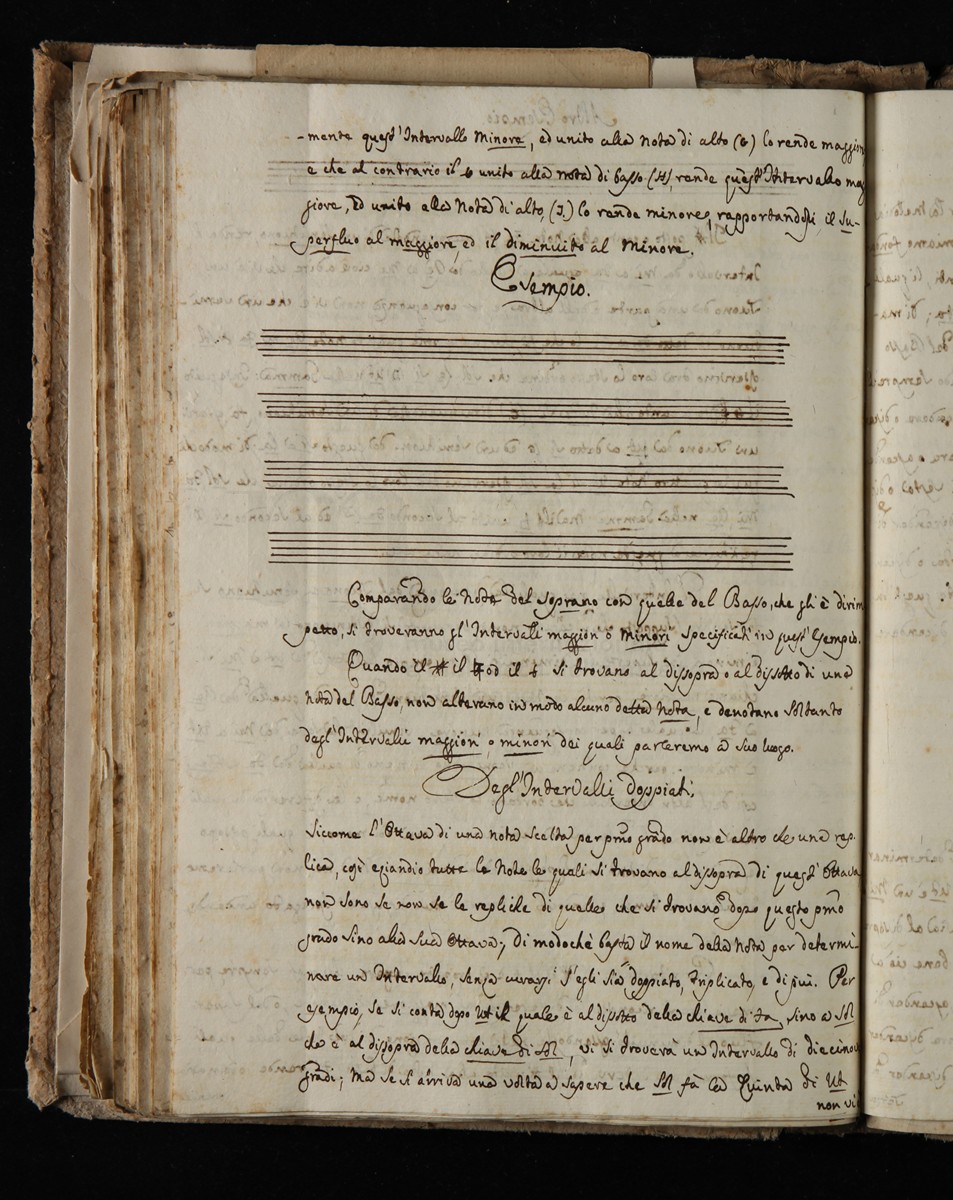 -mente quest'Intervallo Minore, ed unito alla nota di alto (G) lo rende maggior
e che al contrario il b unito alla nota di basso (H), rende quest'Intervallo mag
giore, Ed unito alla Nota d'alto, (I.) lo rende minore, rapportandosi il Su-
perfluo al maggiore, ed il diminuito al Minore.
Esempio.
Comparando le Note del Soprano con quelle del Basso, che gli è dirim
petto, si troveranno gl'Intervalli maggiori o Minori specificati in quest'Esempio.
Quando il # il ♮ od il b si trovano al dissopra o al dissotto di una
nota del Basso, non alterano in modo alcuno detta Nota, e denotano soltanto
degl'Intervalli maggiori o minori dei quali parleremo a suo luogo.
Degl'Intervalli doppiati,
Siccome l'Ottava di una nota scelta per pmo grado non è altro che una rep-
lica, così eziandio tutte le Note le quali si trovano al dissopra di quest'Ottava
non sono se non se le repliche di quelle che si trovano dopo questo pmo
grado sino alla sua Ottava; Di modochè basta il nome della Nota per determi-
nare un Intervallo, senza curarsi s'egli sia doppiato, triplicato, e di più. Per
esempio, Se si conta dopo Ut il quale è al dissotto della chiave di Fa, sino a Sol
che è al dissopra della chiave di Sol, vi si troverà un Intervallo di diecinove
gradi; Ma se si arriva una volta a sapere che Sol fà la Quinta di Ut
non vi